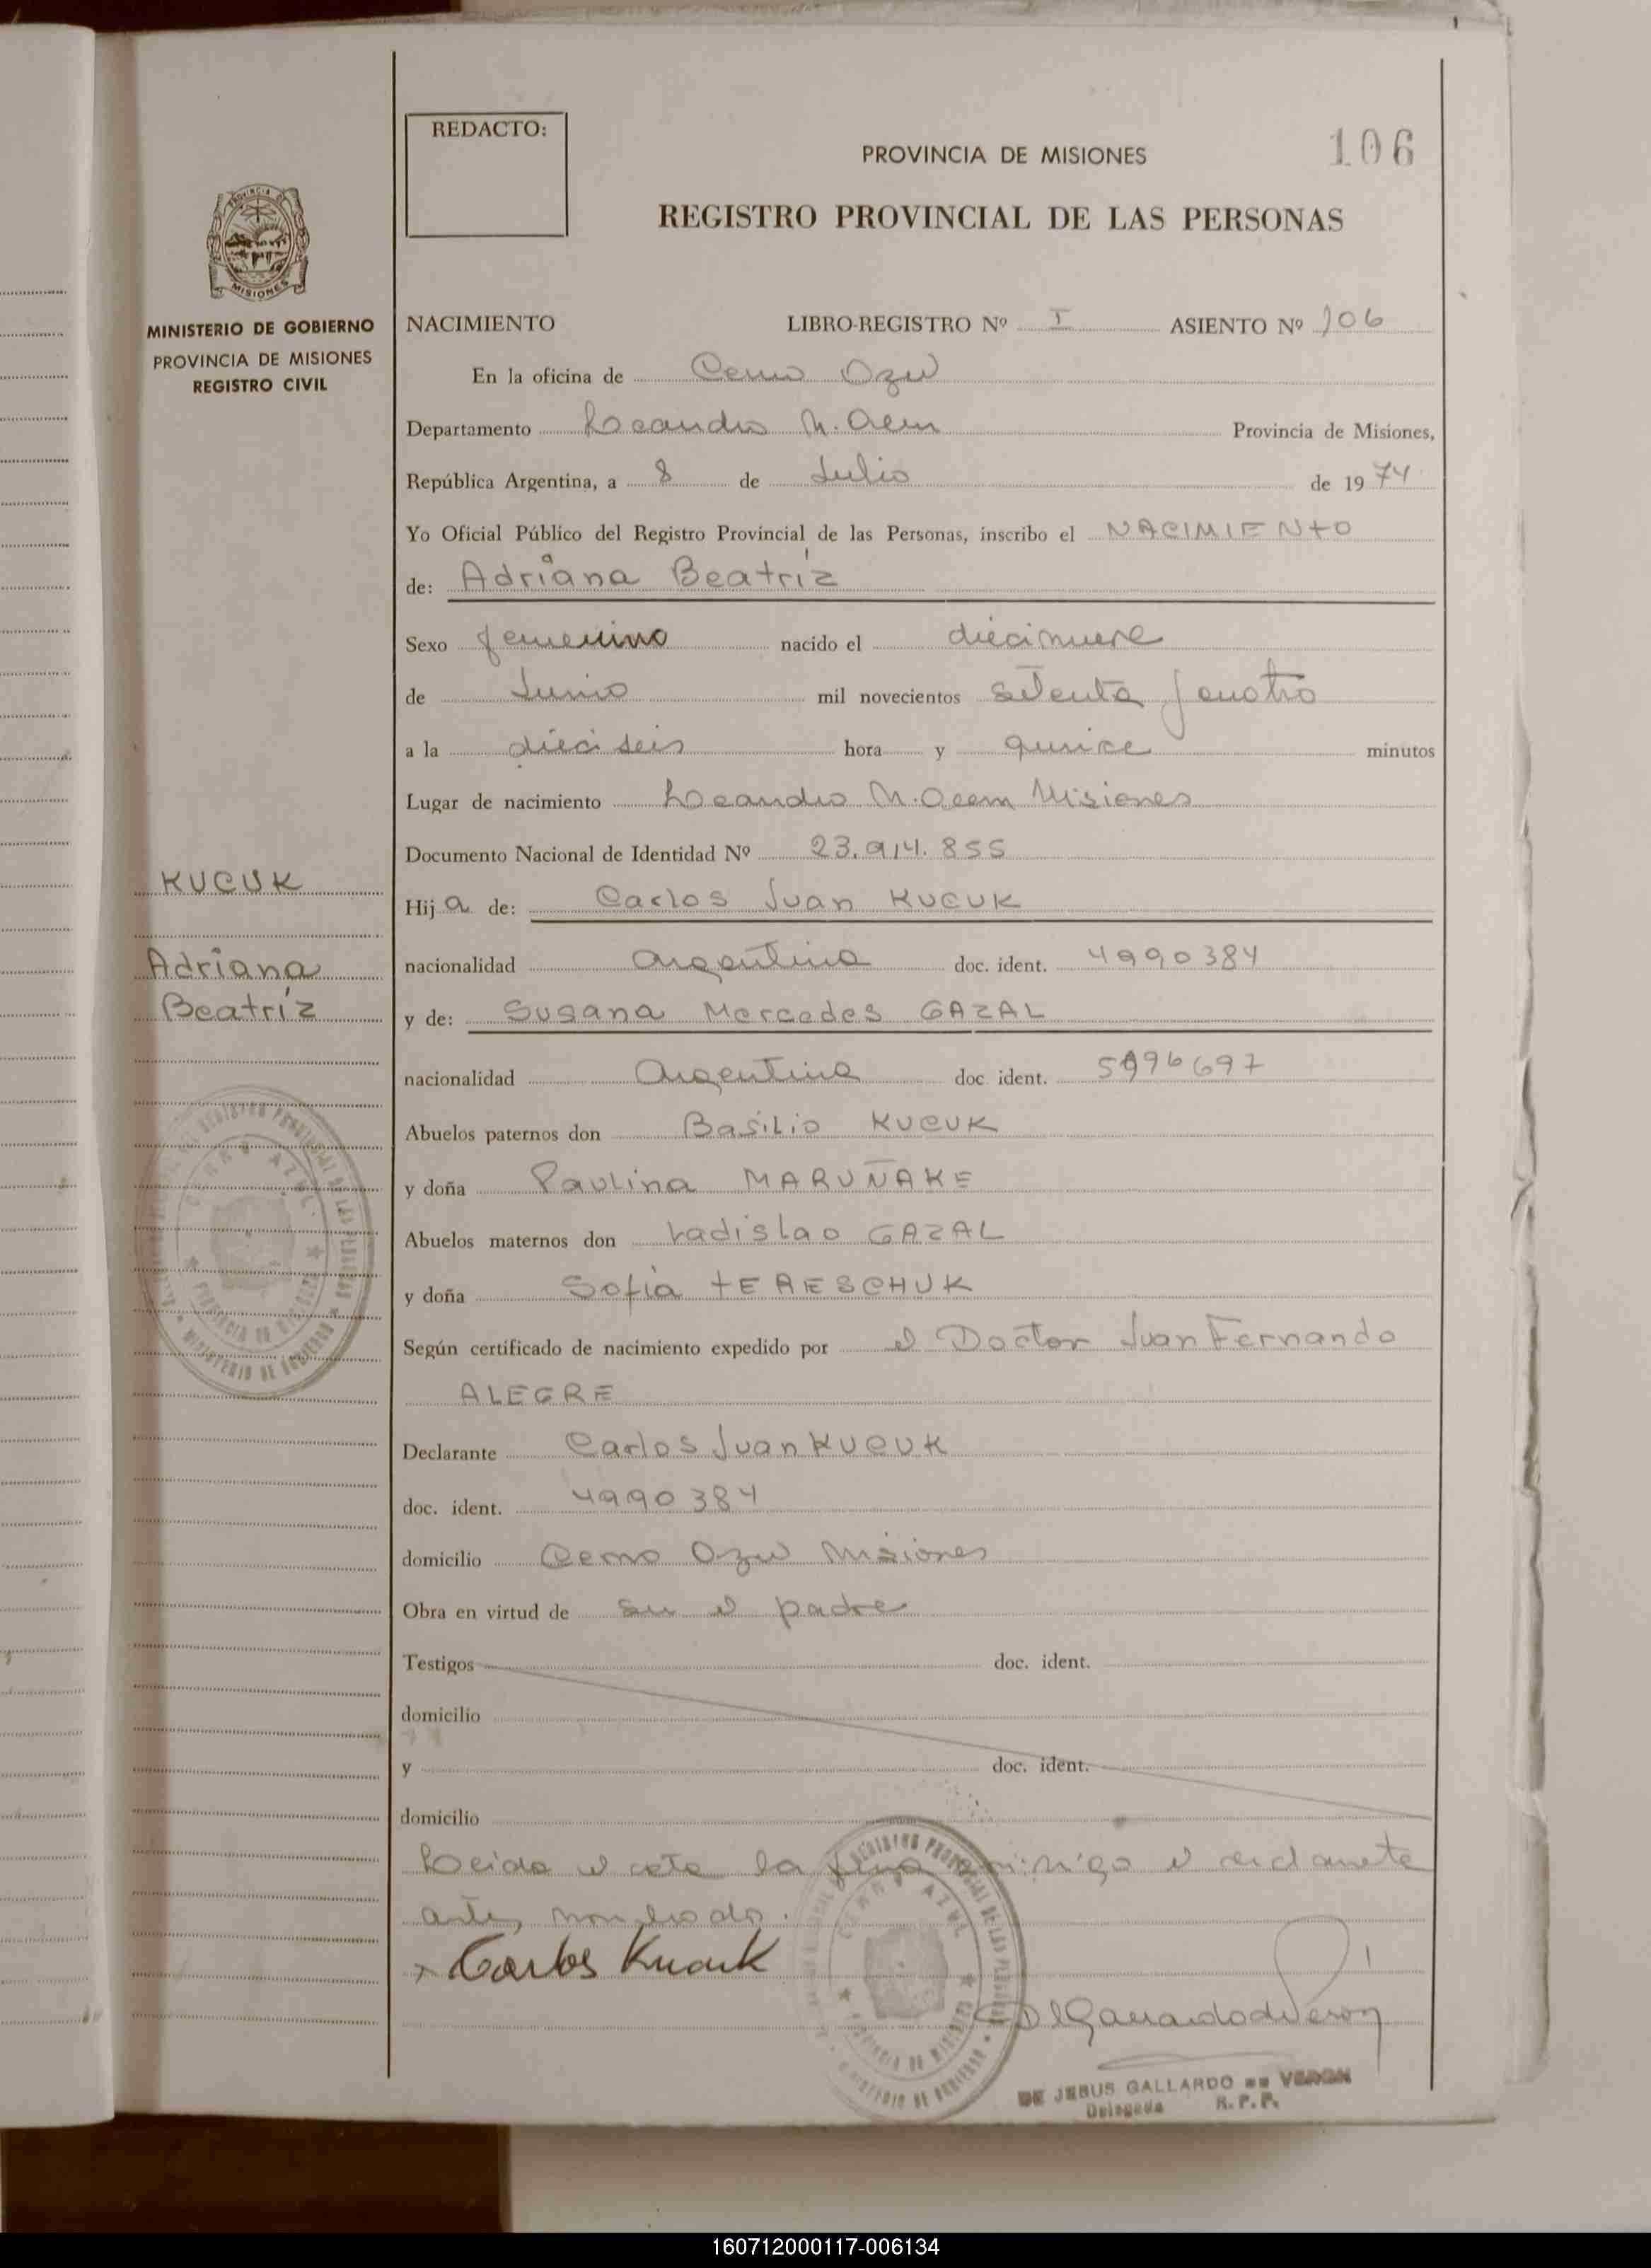 REDACTO:
PROVINCIA DE MISIONES
106
REGISTRO PROVINCIAL DE LAS PERSONAS
MISIONES
MINISTERIO DE GOBIERNO
PROVINCIA DE MISIONES
REGISTRO CIVIL
NACIMIENTO LIBRO-REGISTRO Nº I ASIENTO Nº 106
En la oficina de Cerro Azul
Departamento Leandro N. Alem Provincia de Misiones,
República Argentina, a 8 de Julio de 1974
Yo Oficial Público del Registro Provincial de las Personas, inscribo el NACIMIENTO
de: Adriana Beatríz
Sexo femenino nacido el diecinueve
de Junio mil novecientos setenta y cuatro
a la dieciseis hora y quince minutos
Lugar de nacimiento Leandro N. Alem Misiones
Documento Nacional de Identidad Nº 23.914.855
KUCUK
Hija de: Carlos Juan KUCUK
Adriana
nacionalidad argentina doc. ident. 4990384
Beatríz
y de: Susana Mercedes GAZAL
nacionalidad Argentina doc. ident.
Abuelos paternos don Basilio KUCUK
y doña Paulina MARUÑAKE
Abuelos maternos don Ladislao GAZAL
y doña Sofía TERESCHUK
Según certificado de nacimiento expedido por el Doctor Juan Fernando
ALEGRE
Declarante Carlos Juan KUCUK
doc. ident. 4990384
domicilio Cerro Azul Misiones
Obra en virtud de ser el padre
Testigos doc. ident.
domicilio
y doc. ident.
domicilio
Leida el acta la firma conmigo el declarante
antes nombrado.
Carlos Kucuk
DE JESUS GALLARDO DE VERON
Delegada R.P.P.
160712000117-006134